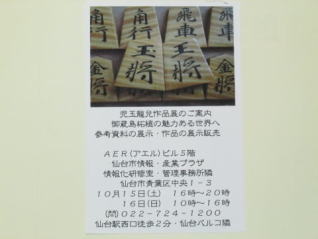 角行 玉将 飛車 王将 飛車
金将 金将
児玉龍兒作品展のご案内
御蔵島柘植の魅力ある世界へ
参考資料の展示・作品の展示販売
AER(アエル)ビル5階
仙台市情報・産業プラザ
情報化研修室・管理事務所隣
仙台市青葉区中央1-3
10月15日(土) 16時～20時
16日(日) 10時～16時
(問)022-724-1200
仙台駅西口徒歩2分・仙台パルコ隣